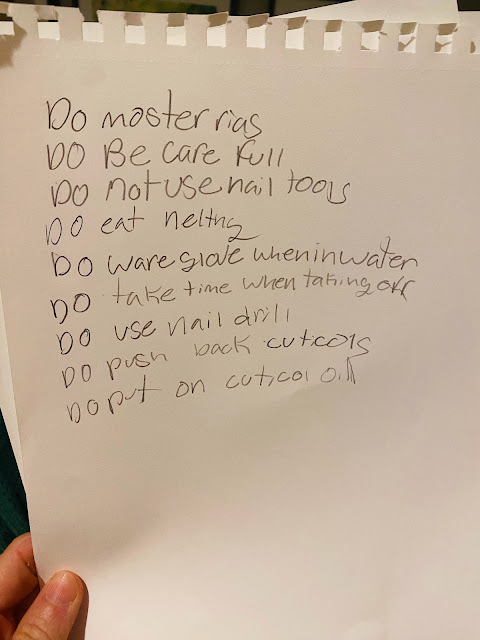 DO mosterrias
DO Be care Full
DO not use nail tools
DO eat nelthy
DO ware glove when in water
DO take time when taking off
DO use nail drill
DO push back cuticols
DO put on cuticol oil